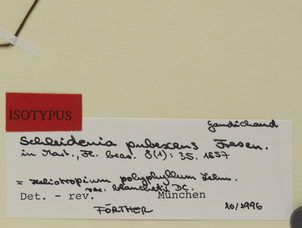 ISOTYPUS
Gaudichaud
Schleidenia pubescens Fresen.
in Mart., Fl. bras. 8(1): 35. 1857
= Heliotropium polyphyllum Lehm.
var. blanchetii DC.
Det. - rev. München
FÖRTHER 10/1996